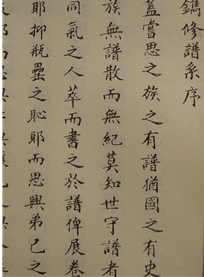 鐫修譜系序
蓋嘗思之族之有譜猶國之有史
族無譜散而無紀莫知世守譜者
同氣之人萃而書之於譜俾展卷
耶抑瓶罍之恥耶而思興弟己之